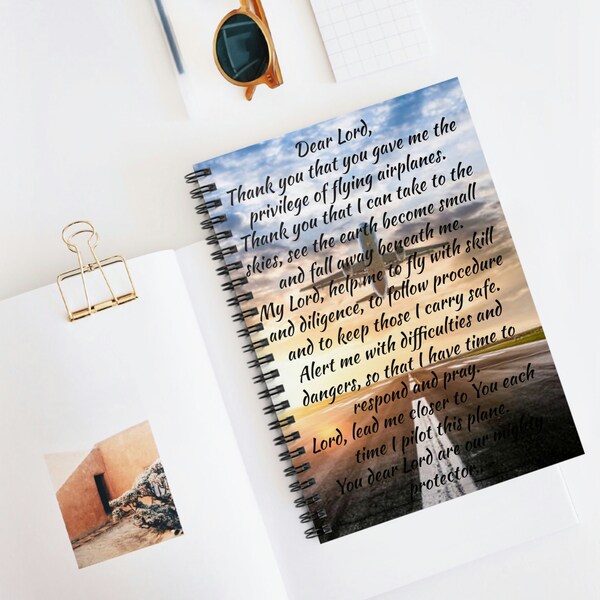 Dear Lord,
Thank you that you gave me the
privilege of flying airplanes.
Thank you that I can take to the
skies, see the earth become small
and fall away beneath me.
My Lord, help me to fly with skill
and diligence, to follow procedure
and to keep those I carry safe.
Alert me with difficulties and
dangers, so that I have time to
respond and pray.
Lord, lead me closer to You each
time I pilot this plane.
You dear Lord are our mighty
protector...